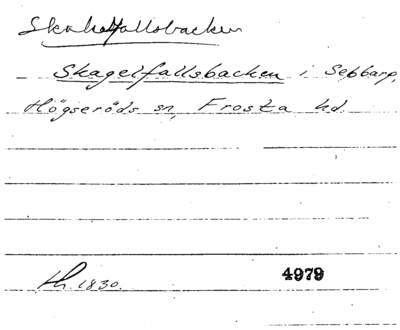 Skakelfallsbacken
Skagelfallsbacken i Sebbarp,
Högseröds sn, Frosta hd.
th. 1830. 4979